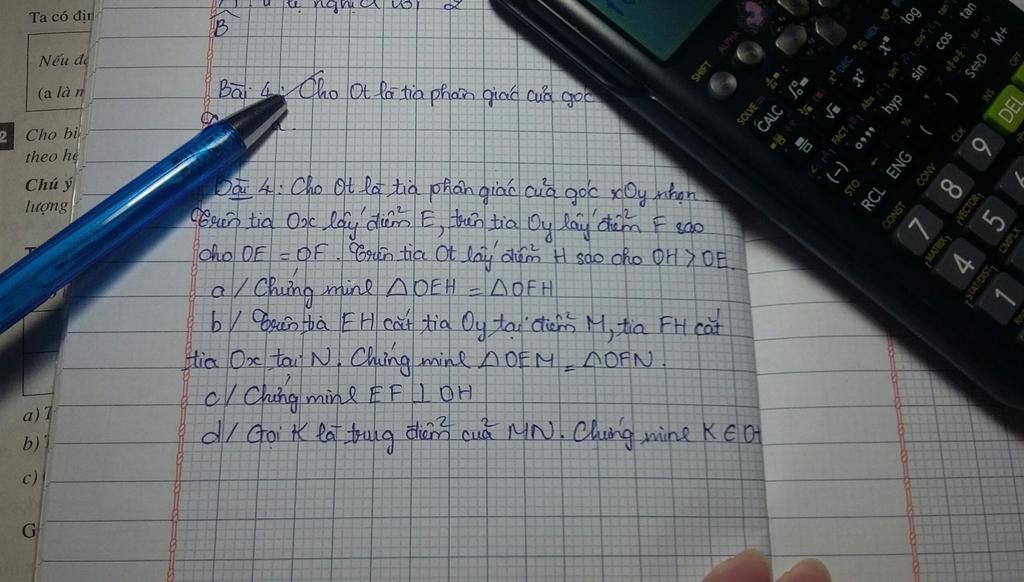 Ta có địn
Nếu đ
(a là n
2 Cho bi
theo h
Chú ý
lượng
a)
b)
c)
G
B̂
Bài 4: Cho Ot là tia phân giác của góc
Bài 4: Cho Ot là tia phân giác của góc xOy nhọn.
Trên tia Ox lấy điểm E, trên tia Oy lấy điểm F sao
cho OE = OF. Trên tia Ot lấy điểm H sao cho OH > OE.
a/ Chứng minh △OEH = △OFH
b/ Trên tia EH cắt tia Oy tại điểm M, tia FH cắt
tia Ox tại N. Chứng minh △OEM = △OFN.
c/ Chứng minh EF ⊥ OH
d/ Gọi K là trung điểm của MN. Chứng minh K ∈ Ot
SHIFT
ALPHA
log
tan
cos
sin
hyp
M+
S⇔D
SOLVE =
CALC
FACT
(-)
STO
RCL
ENG
CONV
CLR
CONST
INS
OFF
DEL
7
8
9
MATRIX
VECTOR
4
5
STAT/DIST
CMPLX
1